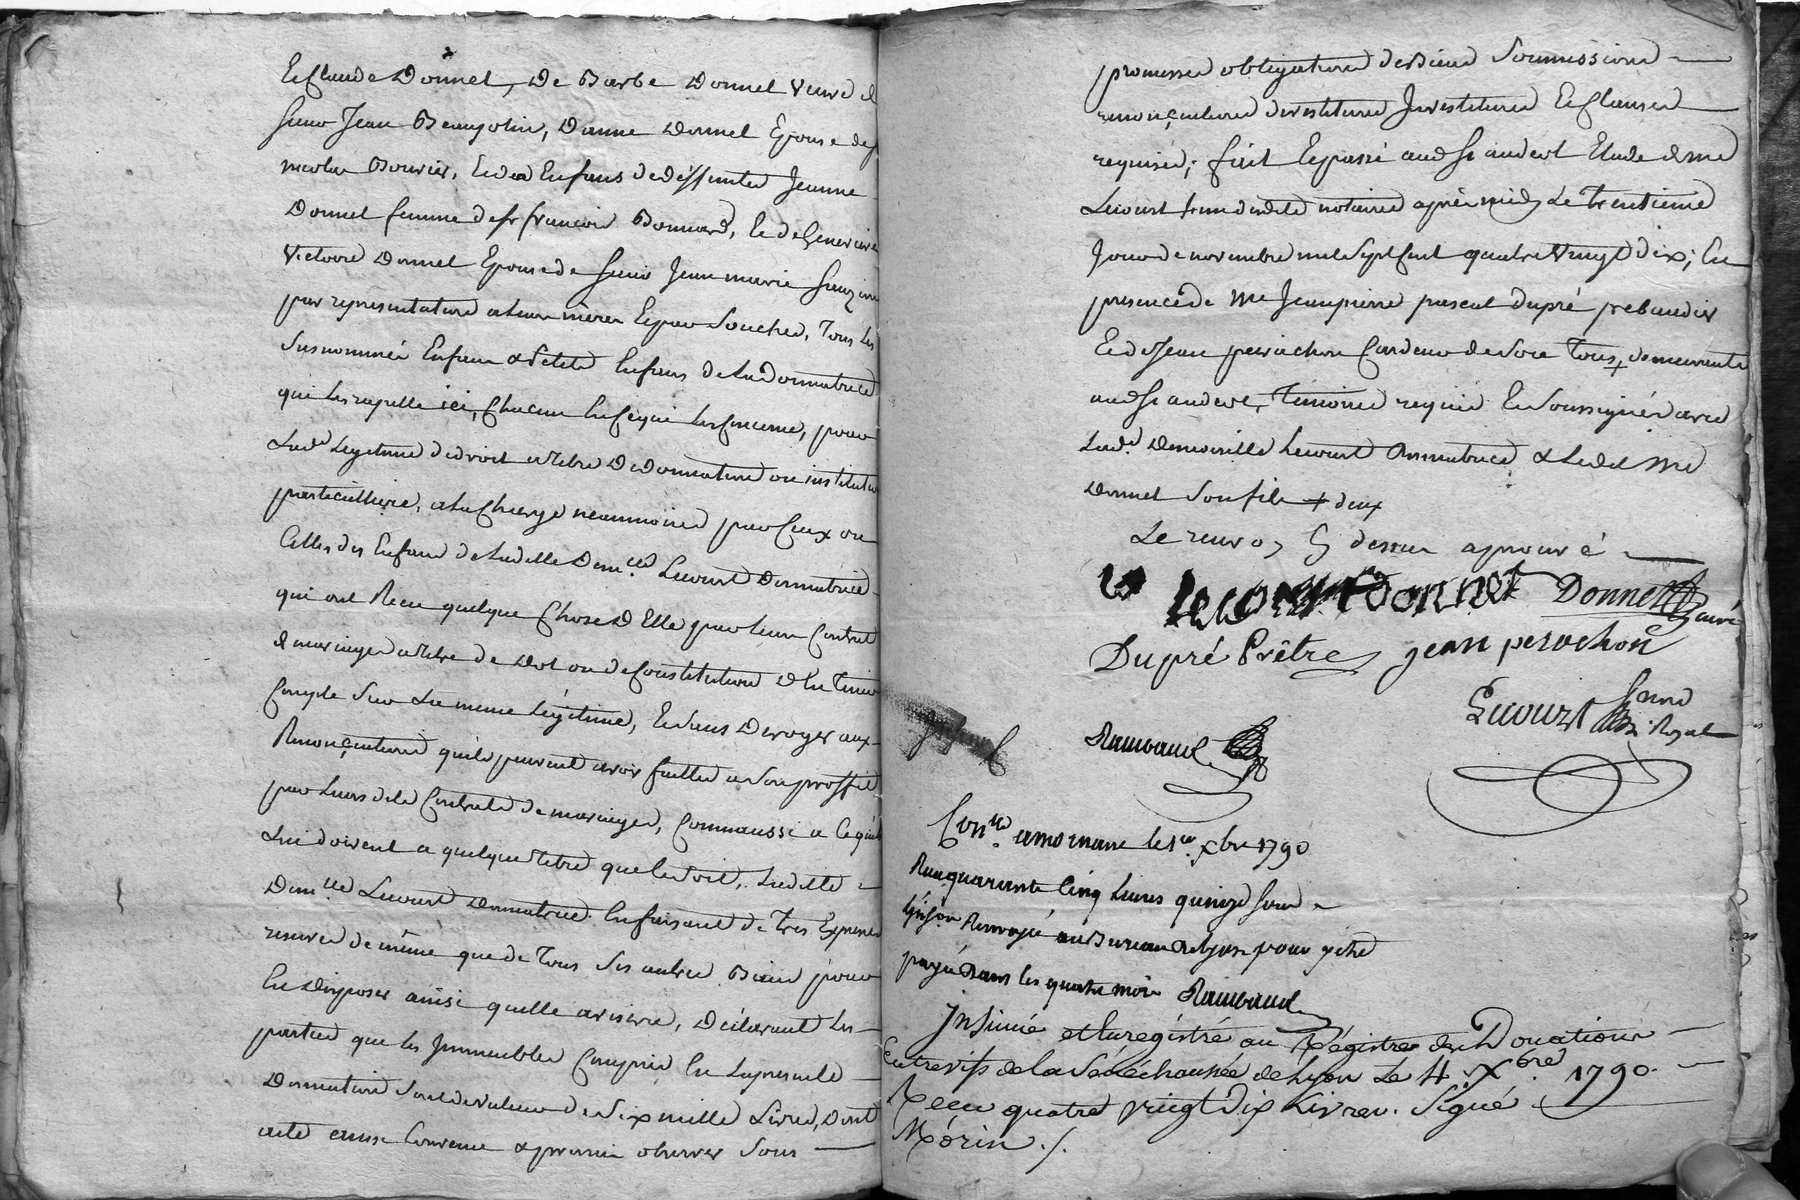 Et Claude Donnet, de Barbe Donnet veuve de
Sieur Jean Beaujolin, Danne Donnet Epouse de sr
nicolas Bouvier, Et des Enfans de deffunte Jeanne
Donnet femme de sr françois Bonnard, Et de Genevieve
Victoire Donnet Epouse de Sieur Jean marie
par representation de leurs meres Et par Souches, Tous les
susnommés Enfans & Petits Enfans de la donnatrice
qui les rapelle ici, Chacun En Ce qui les Concerne, pour
Lad.e Legitime de droit a titre de donnation ou institution
particulliere, a la Charge neanmoins pour Ceux ou
Celles des Enfans de ladite Dem.lle Lecourt Donnatrice
qui ont Recu quelque Chose d'Elle par leur Contrat
de mariage a titre de dot ou de Constitution d'En Tenir
Compte sur La meme légitime, Et sans Deroger aux
Renonçiations quils peuvent avoir faittes a son proffit
par Leurs dits Contrats de mariage, Comm aussi a Ce quils
Lui doivent a quelque titre que Ce soit, Ladite
Dem.lle Lecourt Donnatrice En faisant de Tres Expresses
reserves de même que de Tous ses autres Biens pour
En disposer ainsi quelle avisera, Déclarant les
parties que les Immeubles Compris En la presente
Donnation sont de valeur de Six mille Livres, Dont
acte ainsi Convenu & promis observer sous
promesses obligations de Biens Soumissions
renonçiations devestitures Investitures Et Clauses
requises; fait Et passé aud St andeol Etude de me
Lecourt L'un desdits notaires après midy Le trentieme
Jour de novembre mil Sept Cent quatre Vingt dix; En
presence de me Jean pierre pascal dupré prebandier
Et de Jean perachon Cardeur de soie Tous + demeurants
aud St andeol, Timoins requis Et Soussignés avec
Lad.e Demoiselle Lecourt Donnatrice & Ledit me
Donnet Son fils + deux
Le renvoy Cy dessus aprouvé
Lecourt donnet Donnet Curé
Dupré Prêtre jean perachon
Lecourt No.re Royal
Rambaud
Con.lle a mornant le 1er Xbre 1790
Reçu quarante Cinq Livres quinze sous
Renvoyé au Bureau de Lyon pour y être
payé dans les quatre mois Rambaud
Insinué et Enregistré au Régistre des Donations
Entrevifs de la Sénéchaussée de Lyon Le 4 Xbre 1790
Reçu quatre vingt Dix Livres. Signé
Morin ./.